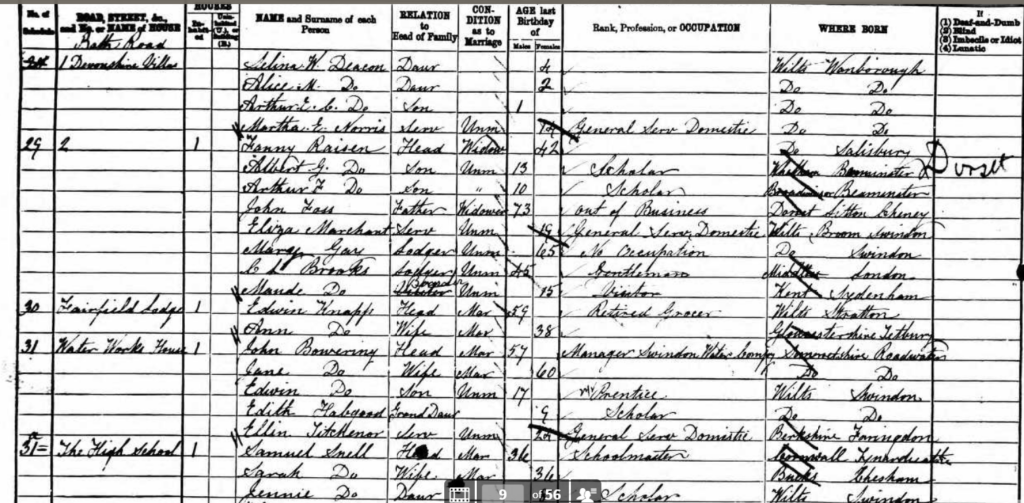 No. of Schedule ROAD, STREET, &c., and No. or NAME of HOUSE HOUSES Inhabited Uninhabited (U.), or Building (B.) NAME and Surname of each Person RELATION to Head of Family CONDITION as to Marriage AGE last Birthday of Males Females Rank, Profession, or OCCUPATION WHERE BORN If (1) Deaf-and-Dumb (2) Blind (3) Imbecile or Idiot (4) Lunatic
Bath Road
1 Devonshire Villas Selina W. Deacon Daur 4 Wilts Wanborough
Alice M. Do Daur 2 Do Do
Arthur E. C. Do Son 1 Do Do
Martha E. Norris Serv Unm General Serv Domestic Do Do
29 2 1 Fanny Raisen Head Widow 42 Do Salisbury
Albert G. Do Son Unm 13 Scholar Beaminster Dorset
Arthur F. Do Son " 10 Scholar Beaminster
John Foss Father Widower 73 Out of Business Dorset Litton Cheney
Eliza Marchant Serv Unm 19 General Serv Domestic Wilts Broom Swindon
Margt Gay Lodger Unm 65 No Occupation Do Swindon
C L Brooks Lodger Unm 45 Gentleman London
Maude Do Boarder Visitor Unm 15 Visitor Kent Sydenham
30 Fairfield Lodge 1 Edwin Knapp Head Mar 59 Retired Grocer Wilts Stratton
Ann Do Wife Mar 38 Gloucestershire Tetbury
31 Water Works House 1 John Bowering Head Mar 57 Manager Swindon Water Compy Somersetshire Roadwater
Jane Do Wife Mar 60 Do Do
Edwin Do Son Unm 17 Prentice Wilts Swindon
Edith Habgood Grand Daur 9 Scholar Do Do
Ellin Titchenor Serv Unm 24 General Serv Domestic Berkshire Faringdon
The High School 1 Samuel Snell Head Mar 36 Schoolmaster Cornwall
Sarah Do Wife Mar 36 Bucks Chesham
Jennie Do Daur Scholar Wilts Swindon
9 of 56